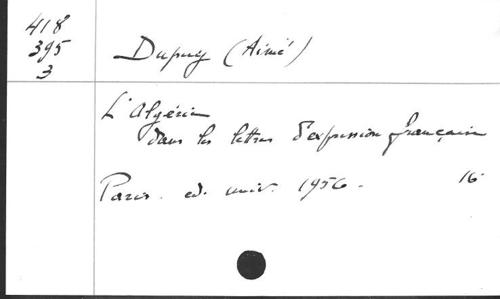 418
395
3
Dupuy (Aimé)
L'Algérie
dans les lettres d'expression française
Paris. ed. univ. 1956. 16